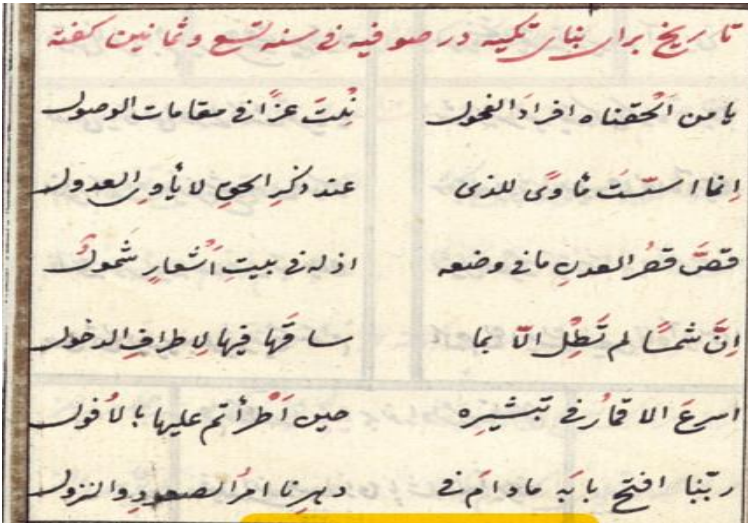 تاریخ برای بنای تکیه در صوفیه فی سنه تسع وثمانین کفته
یا من اَلْحقناه افرادَ الفحول نِلْتَ عزًّا فی مقامات الوصول
اِنما اسّسَت ثاوًی للذی عند ذکرِ الحقِ لا یأوی العدول
قصَّ قصْرُ العدنِ ما فی وضعه اذ له فی بیتِ اَشعارٍ شمول
اِنَّ شمسًا لم تَطِل الّا بما ساقها فیها لِاطرافِ الدخول
اسرعَ الاقمارُ فی تبشیره حین اَطرأتم علیها بالاُفول
ربّنا افتح بابَه مادام فی دهرنا امرُ الصعودِ والنزول